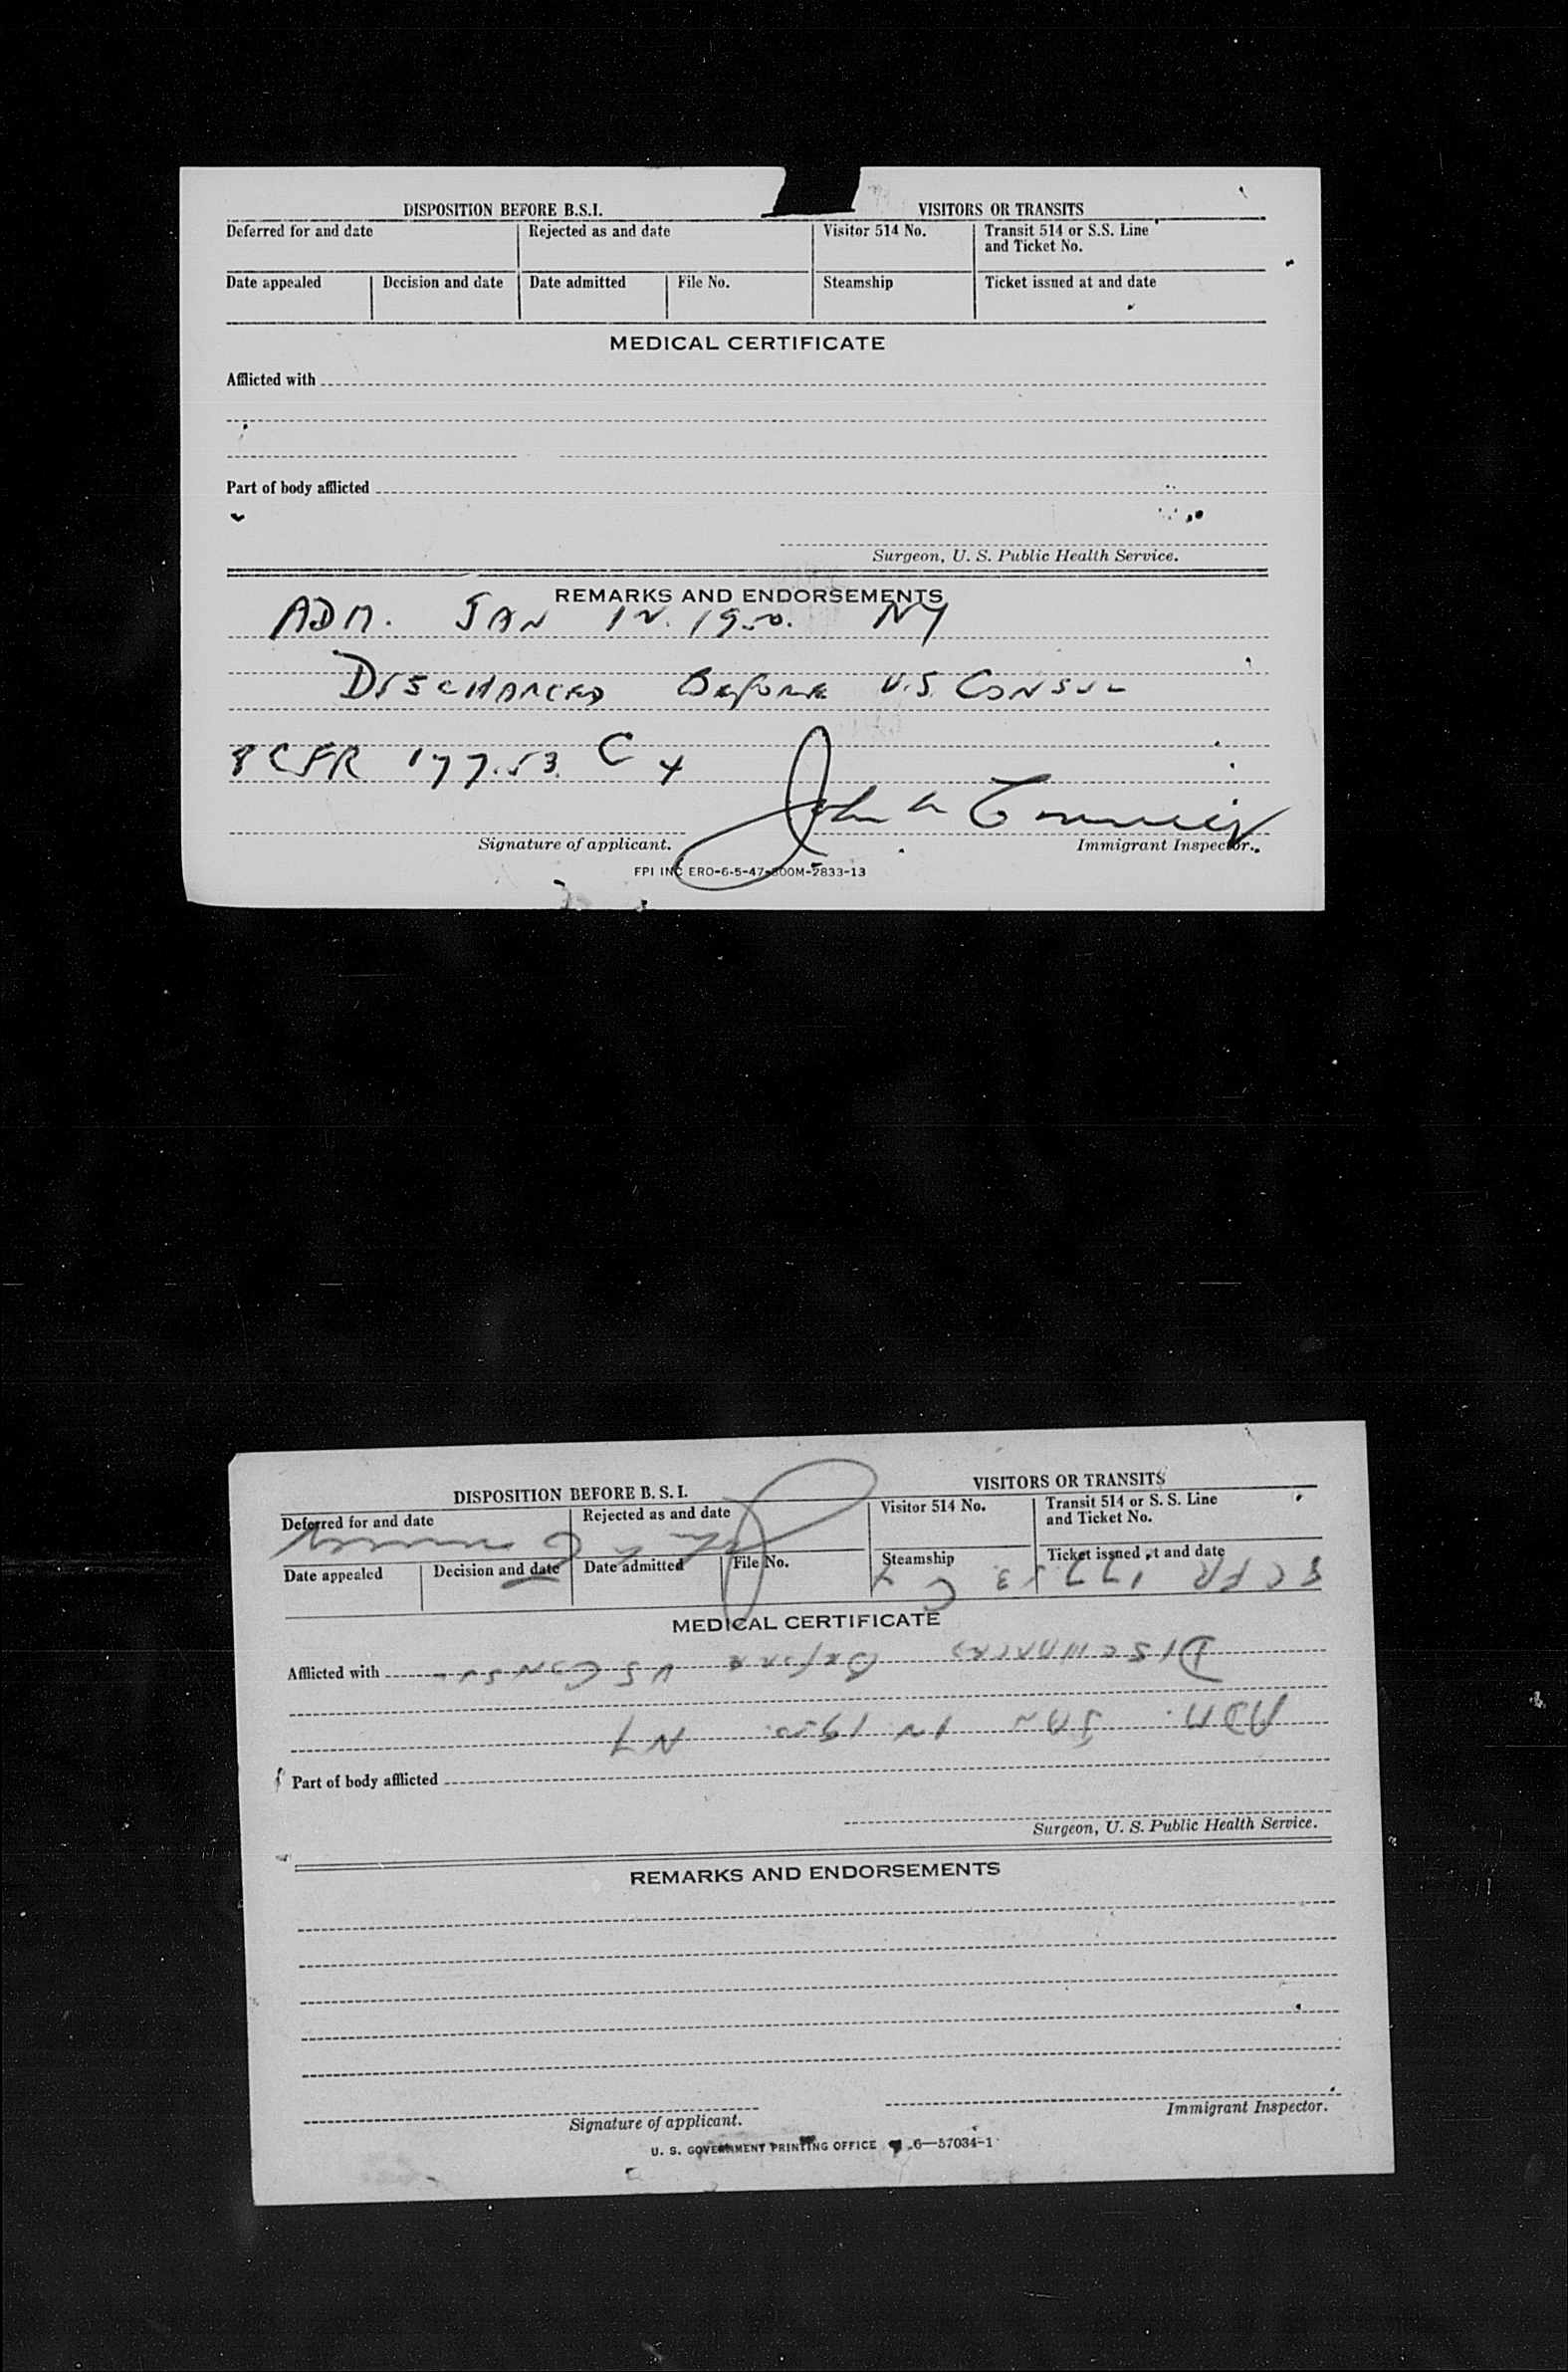 DISPOSITION BEFORE B.S.I. VISITORS OR TRANSITS
Deferred for and date Rejected as and date Visitor 514 No. Transit 514 or S.S. Line
and Ticket No.
Date appealed Decision and date Date admitted File No. Steamship Ticket issued at and date
MEDICAL CERTIFICATE
Afflicted with
Part of body afflicted
Surgeon, U. S. Public Health Service.
REMARKS AND ENDORSEMENTS
ADM. JAN 12. 1950. NY
DISCHARGED BEFORE U.S. CONSUL
8 CFR 177.53. C 4
John
Signature of applicant. Immigrant Inspector.
FPI INC ERO-6-5-47-500M-2833-13
DISPOSITION BEFORE B. S. I. VISITORS OR TRANSITS
Deferred for and date Rejected as and date Visitor 514 No. Transit 514 or S. S. Line
and Ticket No.
Date appealed Decision and date Date admitted File No. Steamship Ticket issued at and date
8 CFR 177.53 C 4
MEDICAL CERTIFICATE
DISCHARGED BEFORE U S CONSUL
Afflicted with
ADM. JAN 12 1950. NY
Part of body afflicted
Surgeon, U. S. Public Health Service.
REMARKS AND ENDORSEMENTS
Signature of applicant. Immigrant Inspector.
U. S. GOVERNMENT PRINTING OFFICE 6—57034-1